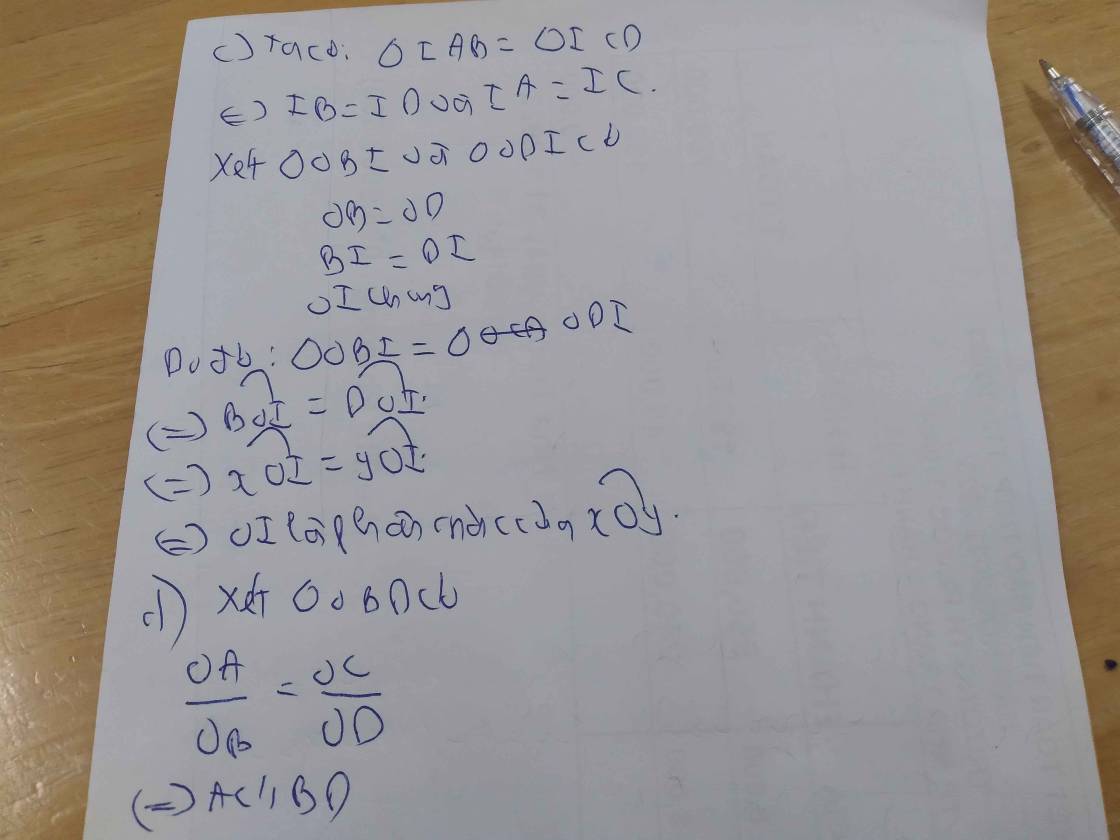 c) Ta có: Δ IAB = Δ ICD
<=> IB = ID và IA = IC.
Xét Δ OBI và Δ ODI có
OB = OD
BI = DI
OI chung
Do đó: Δ OBI = Δ ODI
<=> BOI = DOI
<=> xOI = yOI
<=> OI là phân giác của xOy.
d) Xét Δ OBD có
OA/OB = OC/OD
<=> AC // BD